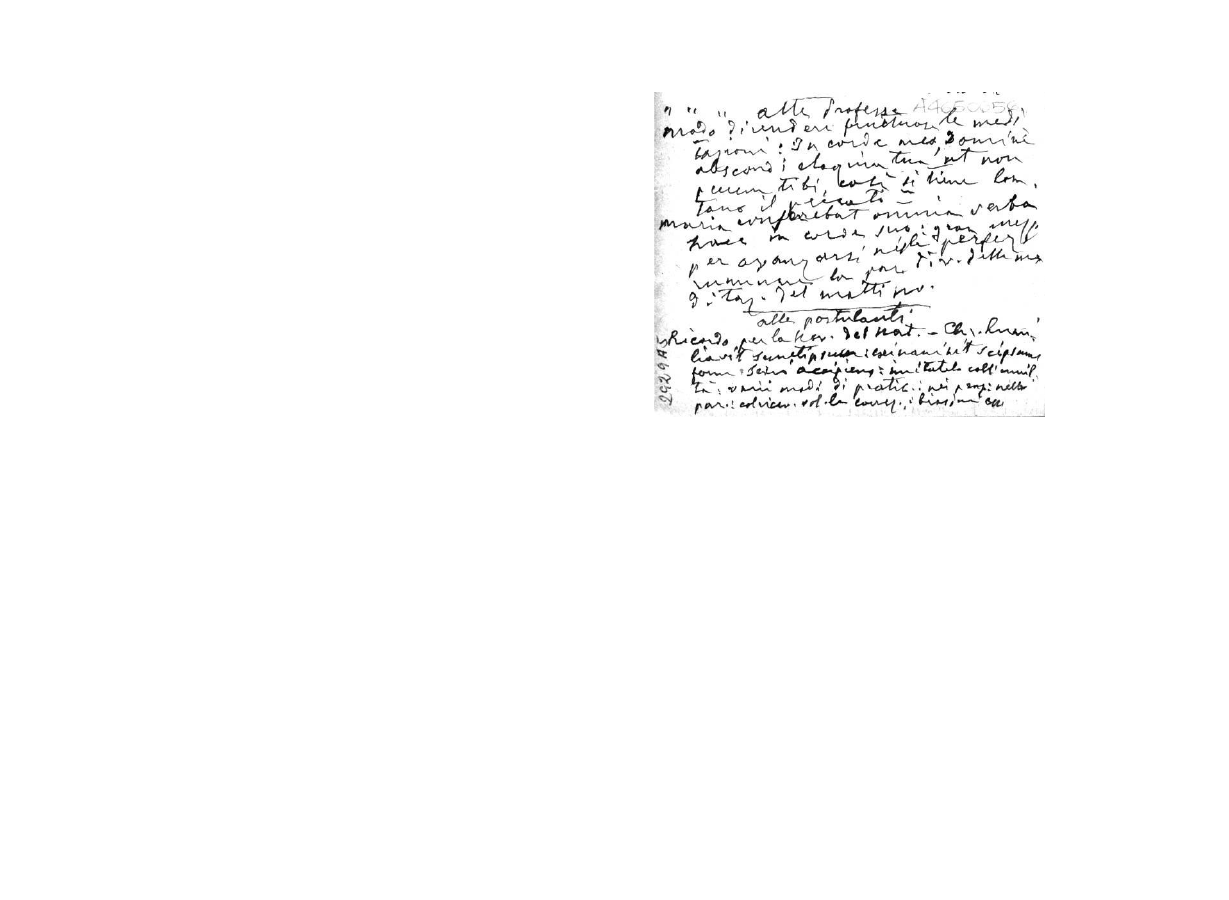 " " " alle Professe A4650056
modo di render fruttuose le medi
tazioni: In corde meo, Domine
abscondi eloquia tua, ut non
peccem tibi, così si tiene lon.
tano il peccato =
Maria conferebat omnia verba
haec in corde suo: gran mezz
per avanzarsi negli perfez
ruminare la par. div. della me
ditaz. del mattino.
alle postulanti
Ricordo per la Nov. del Nat. - Ch. humi
liavit semetipsum: exinanivit seipsum
form: servi accipiens: imitatelo coll'umil
tà: varii modi di pratic.: nei pens: nelle
par.: col
2929 A5